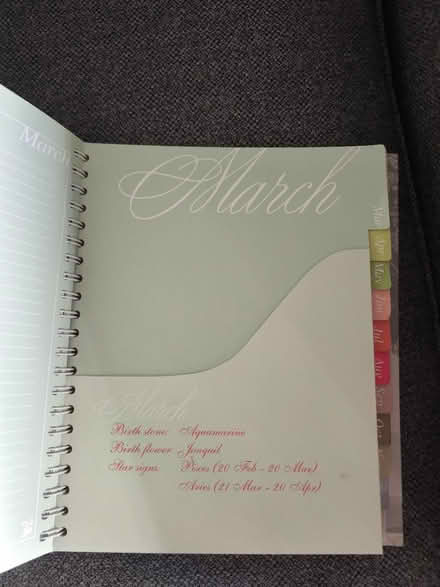 March
March
Mar
Apr
May
Jun
Jul
Aug
Sep
Oct
March
Birth stone: Aquamarine
Birth flower: Jonquil
Star signs: Pisces (20 Feb - 20 Mar)
Aries (21 Mar - 20 Apr)